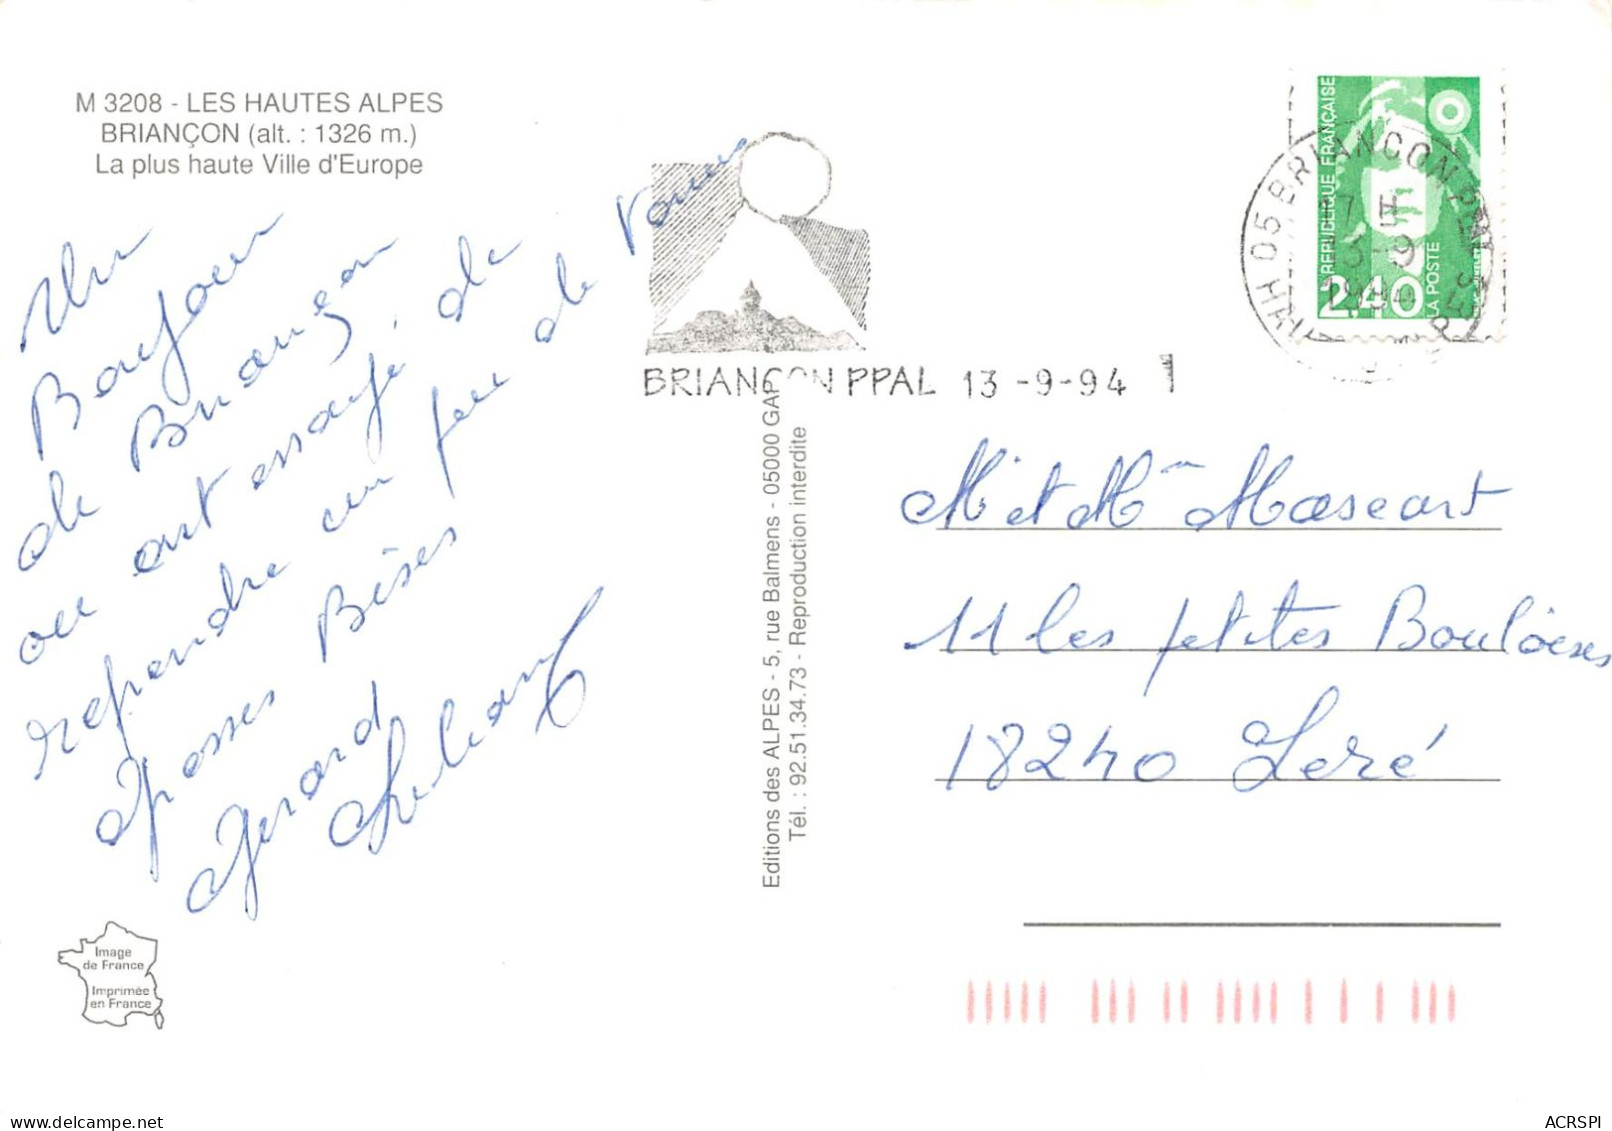 M 3208 - LES HAUTES ALPES
BRIANÇON (alt. : 1326 m.)
La plus haute Ville d'Europe
Un
Bonjour
de Briançon
ou ont essayé, de
reprendre un peu de
Grosses Bises
Gérard
BRIANÇON PPAL 13 -9-94 1
RÉPUBLIQUE FRANÇAISE
2,40
LA POSTE
05 BRIANCON PPAL
17 H
13-9
1994
HAUTES ALPES
Editions des ALPES - 5, rue Balmens - 05000 GAP
Tél. : 92.51.34.73 - Reproduction interdite
Mr et Mme Mascart
11 les petites Bouloises
18240 Leré
Image
de France
Imprimée
en France
ACRSPI